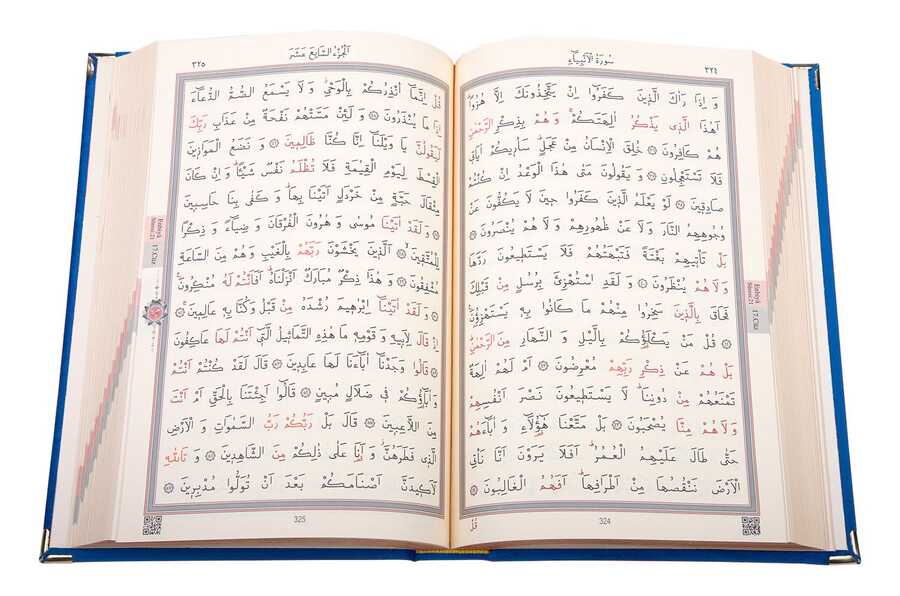 سُورَةُ الْاَنْبِيَاءِ
٣٢٤
وَ اِذَا رَاٰكَ الَّذِينَ كَفَرُٓوا اِنْ يَتَّخِذُونَكَ اِلَّا هُزُوًاۜ
اَهٰذَا الَّذِي يَذْكُرُ اٰلِهَتَكُمْۚ وَ هُمْ بِذِكْرِ الرَّحْمٰنِ
هُمْ كَافِرُونَ خُلِقَ الْاِنْسَانُ مِنْ عَجَلٍۜ سَاُرِيكُمْ اٰيَاتِي
فَلَا تَسْتَعْجِلُونِ وَ يَقُولُونَ مَتٰى هٰذَا الْوَعْدُ اِنْ كُنْتُمْ
صَادِقِينَ لَوْ يَعْلَمُ الَّذِينَ كَفَرُوا حِينَ لَا يَكُفُّونَ عَنْ
وُجُوهِهِمُ النَّارَ وَ لَا عَنْ ظُهُورِهِمْ وَ لَا هُمْ يُنْصَرُونَ
بَلْ تَأْتِيهِمْ بَغْتَةً فَتَبْهَتُهُمْ فَلَا يَسْتَطِيعُونَ رَدَّهَا
وَ لَا هُمْ يُنْظَرُونَ وَ لَقَدِ اسْتُهْزِئَ بِرُسُلٍ مِنْ قَبْلِكَ
فَحَاقَ بِالَّذِينَ سَخِرُوا مِنْهُمْ مَا كَانُوا بِهِ يَسْتَهْزِؤُنَ
قُلْ مَنْ يَكْلَؤُكُمْ بِالَّيْلِ وَ النَّهَارِ مِنَ الرَّحْمٰنِۜ
بَلْ هُمْ عَنْ ذِكْرِ رَبِّهِمْ مُعْرِضُونَ اَمْ لَهُمْ اٰلِهَةٌ
تَمْنَعُهُمْ مِنْ دُونِنَاۜ لَا يَسْتَطِيعُونَ نَصْرَ اَنْفُسِهِمْ
وَ لَا هُمْ مِنَّا يُصْحَبُونَ بَلْ مَتَّعْنَا هٰٓؤُ۬لَٓاءِ وَ اٰبَٓاءَهُمْ
حَتّٰى طَالَ عَلَيْهِمُ الْعُمُرُۜ اَفَلَا يَرَوْنَ اَنَّا نَأْتِي
الْاَرْضَ نَنْقُصُهَا مِنْ اَطْرَافِهَاۜ اَفَهُمُ الْغَالِبُونَ
324
قُلْ
Enbiyâ
Sûresi 21
17. Cüz
اَلْجُزْءُ السَّابِعَ عَشَرَ
٣٢٥
قُلْ اِنَّمَٓا اُنْذِرُكُمْ بِالْوَحْيِۘ وَ لَا يَسْمَعُ الصُّمُّ الدُّعَٓاءَ
اِذَا مَا يُنْذَرُونَ وَ لَئِنْ مَسَّتْهُمْ نَفْحَةٌ مِنْ عَذَابِ رَبِّكَ
لَيَقُولُنَّ يَا وَيْلَنَٓا اِنَّا كُنَّا ظَالِمِينَ وَ نَضَعُ الْمَوَازِينَ
الْقِسْطَ لِيَوْمِ الْقِيٰمَةِ فَلَا تُظْلَمُ نَفْسٌ شَيْـًٔاۜ وَ اِنْ كَانَ
مِثْقَالَ حَبَّةٍ مِنْ خَرْدَلٍ اَتَيْنَا بِهَاۜ وَ كَفٰى بِنَا حَاسِبِينَ
وَ لَقَدْ اٰتَيْنَا مُوسٰى وَ هٰرُونَ الْفُرْقَانَ وَ ضِيَٓاءً وَ ذِكْرًا
لِلْمُتَّقِينَ اَلَّذِينَ يَخْشَوْنَ رَبَّهُمْ بِالْغَيْبِ وَ هُمْ مِنَ السَّاعَةِ
مُشْفِقُونَ وَ هٰذَا ذِكْرٌ مُبَارَكٌ اَنْزَلْنَاهُۜ اَفَاَنْتُمْ لَهُ مُنْكِرُونَ
وَ لَقَدْ اٰتَيْنَٓا اِبْرٰهِيمَ رُشْدَهُ مِنْ قَبْلُ وَ كُنَّا بِهِ عَالِمِينَ
اِذْ قَالَ لِاَبِيهِ وَ قَوْمِهِ مَا هٰذِهِ التَّمَاثِيلُ الَّتِي اَنْتُمْ لَهَا عَاكِفُونَ
قَالُوا وَجَدْنَٓا اٰبَٓاءَنَا لَهَا عَابِدِينَ قَالَ لَقَدْ كُنْتُمْ اَنْتُمْ
وَ اٰبَٓاؤُكُمْ فِي ضَلَالٍ مُبِينٍ قَالُٓوا اَجِئْتَنَا بِالْحَقِّ اَمْ اَنْتَ
مِنَ اللَّاعِبِينَ قَالَ بَلْ رَبُّكُمْ رَبُّ السَّمٰوَاتِ وَ الْاَرْضِ
الَّذِي فَطَرَهُنَّۘ وَ اَنَا۬ عَلٰى ذٰلِكُمْ مِنَ الشَّاهِدِينَ وَ تَاللّٰهِ
لَاَكِيدَنَّ اَصْنَامَكُمْ بَعْدَ اَنْ تُوَلُّوا مُدْبِرِينَ
325
Enbiyâ
Sûresi 21
17. Cüz